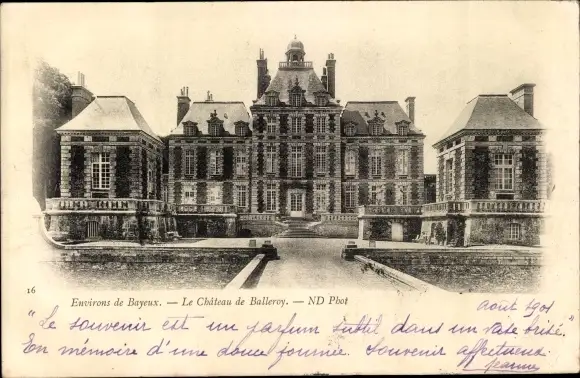 16
Environs de Bayeux. — Le Château de Balleroy. — ND Phot
Août 1901
"Le souvenir est un parfum subtil dans un vase brisé."
En mémoire d'une douce journée. Souvenir affectueux
Jeanne